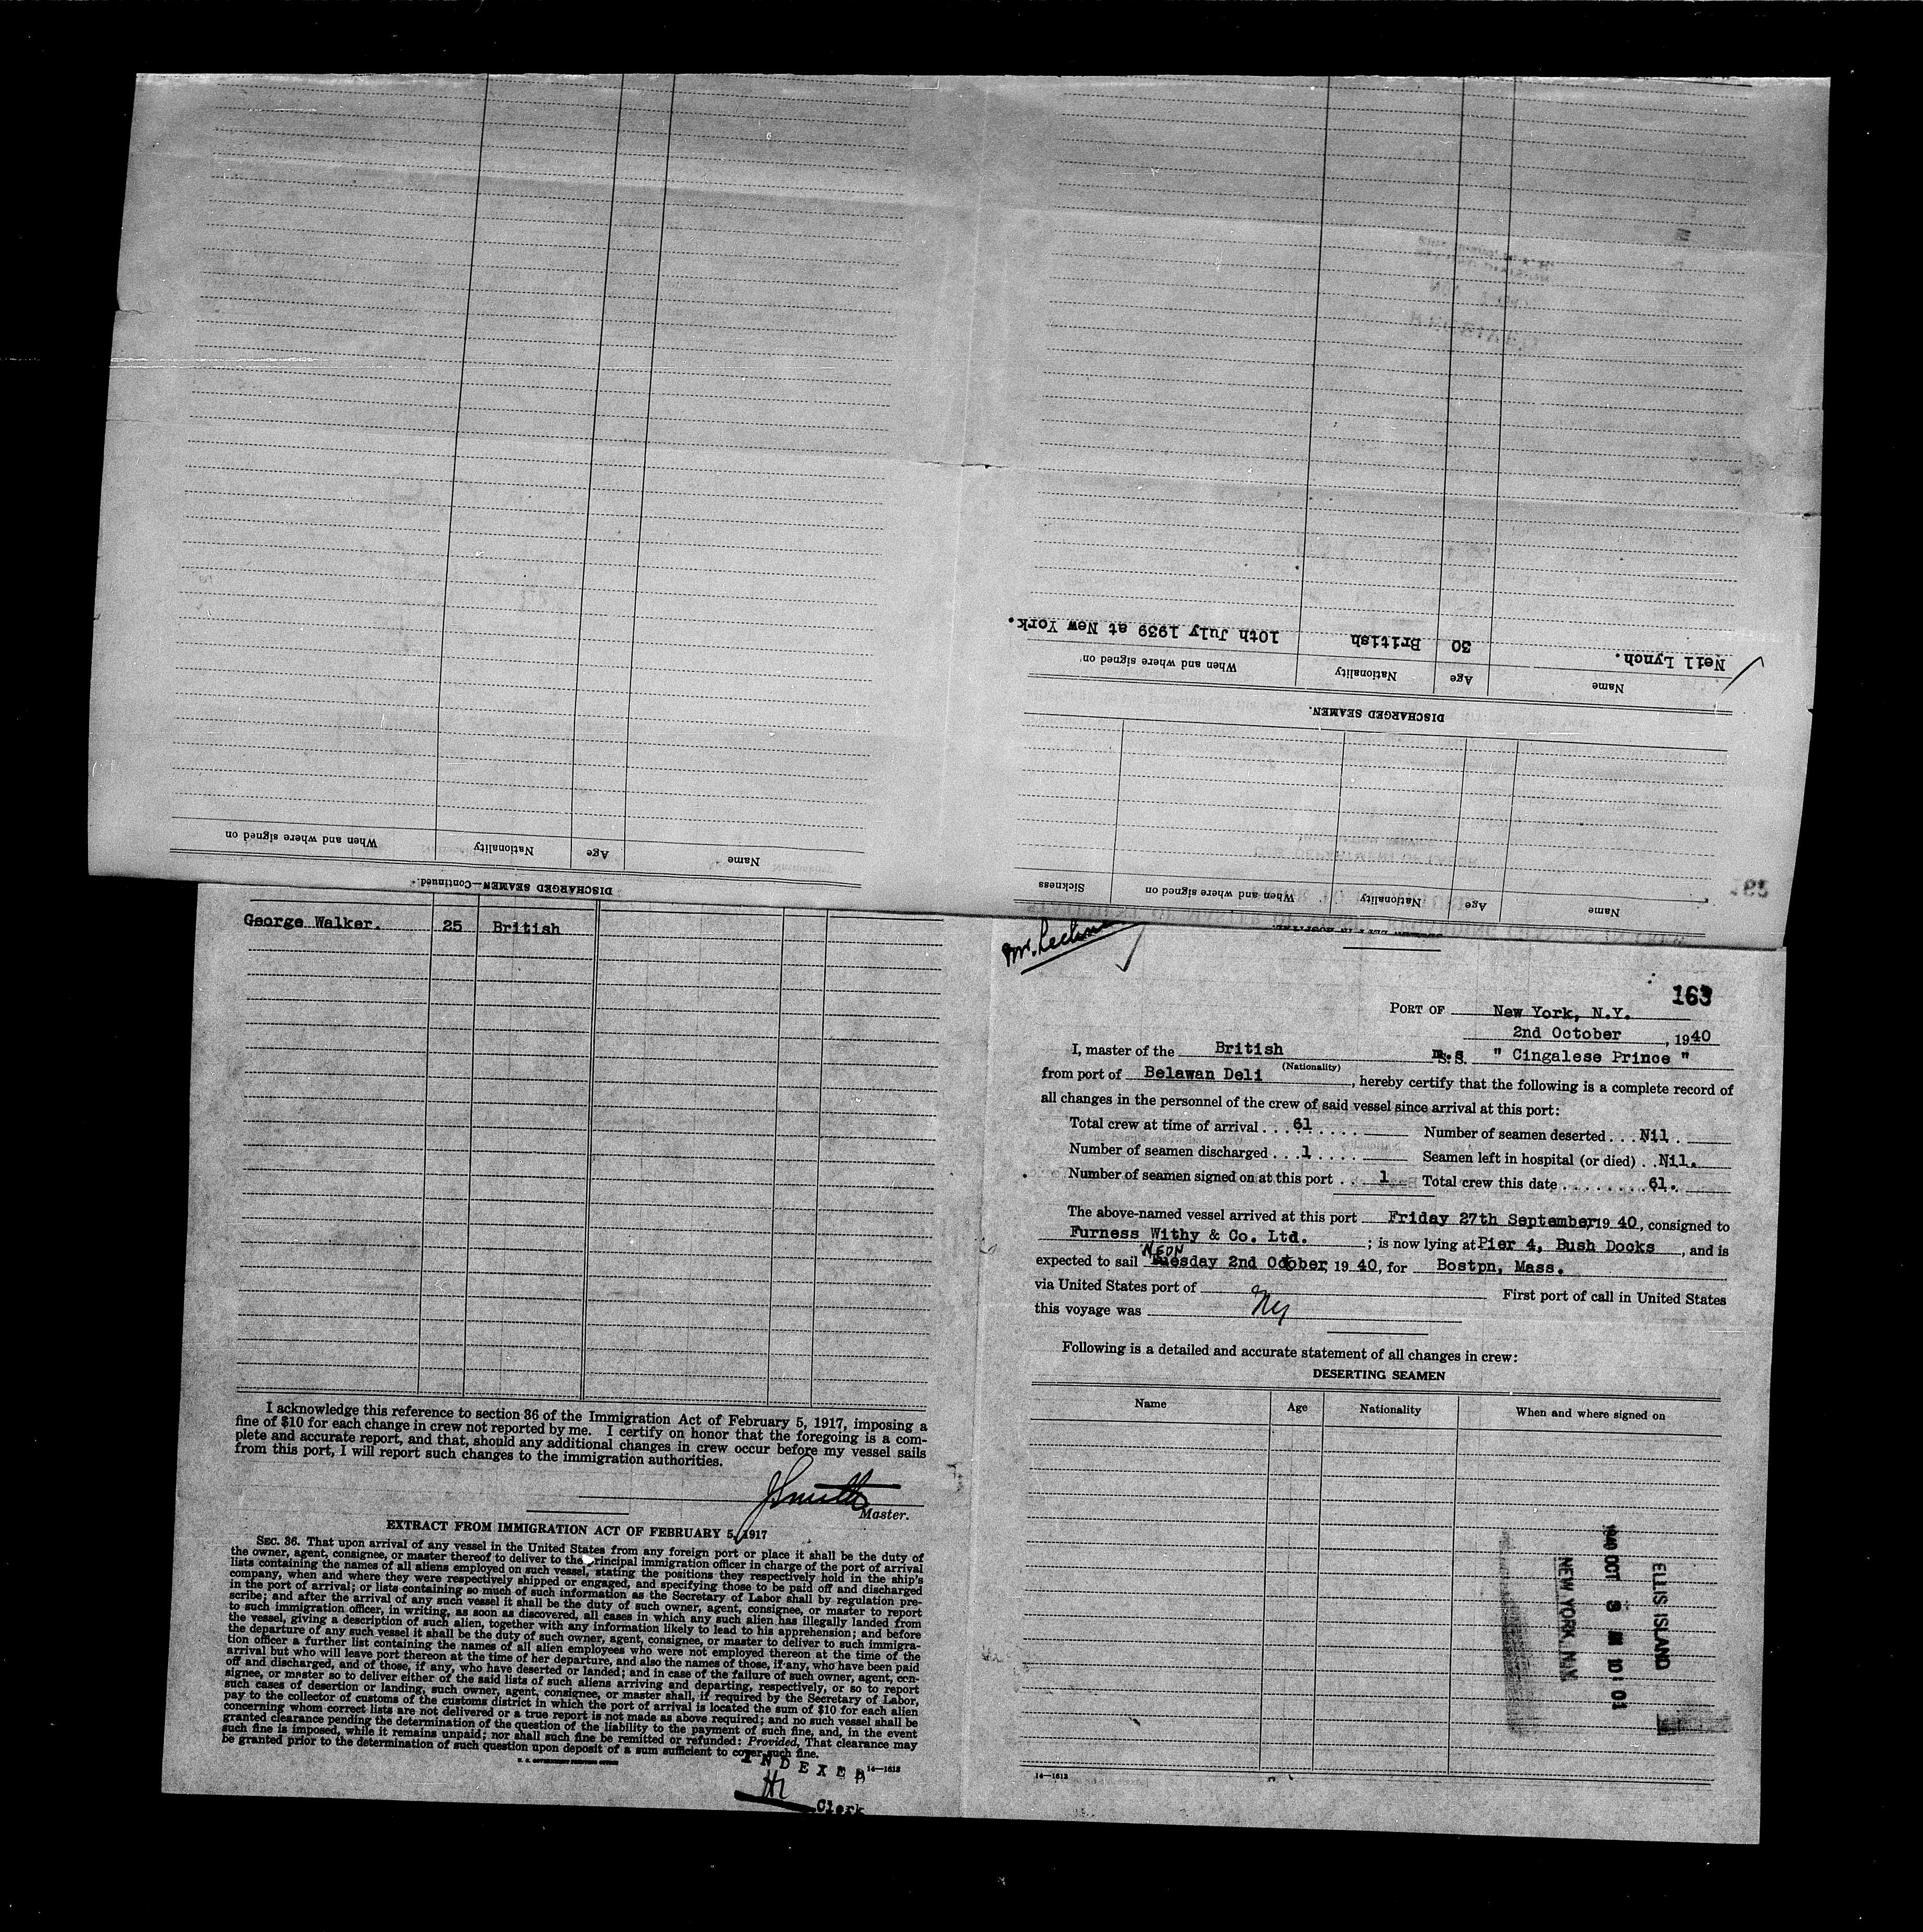 DISCHARGED SEAMEN—Continued.
Name Age Nationality When and where signed on
SEAMEN LEFT IN HOSPITAL.
Name Age Nationality When and where signed on Sickness
DISCHARGED SEAMEN.
Name Age Nationality When and where signed on
Neil Lynch. 30 British 10th July 1939 at New York.
George Walker. 25 British
I acknowledge this reference to section 36 of the Immigration Act of February 5, 1917, imposing a
fine of $10 for each change in crew not reported by me. I certify on honor that the foregoing is a com-
plete and accurate report, and that, should any additional changes in crew occur before my vessel sails
from this port, I will report such changes to the immigration authorities.
JSmith
Master.
EXTRACT FROM IMMIGRATION ACT OF FEBRUARY 5, 1917
SEC. 36. That upon arrival of any vessel in the United States from any foreign port or place it shall be the duty of
the owner, agent, consignee, or master thereof to deliver to the principal immigration officer in charge of the port of arrival
lists containing the names of all aliens employed on such vessel, stating the positions they respectively hold in the ship's
company, when and where they were respectively shipped or engaged, and specifying those to be paid off and discharged
in the port of arrival; or lists containing so much of such information as the Secretary of Labor shall by regulation pre-
scribe; and after the arrival of any such vessel it shall be the duty of such owner, agent, consignee, or master to report
to such immigration officer, in writing, as soon as discovered, all cases in which any such alien has illegally landed from
the vessel, giving a description of such alien, together with any information likely to lead to his apprehension; and before
the departure of any such vessel it shall be the duty of such owner, agent, consignee, or master to deliver to such immigra-
tion officer a further list containing the names of all alien employees who were not employed thereon at the time of the
arrival but who will leave port thereon at the time of her departure, and also the names of those, if any, who have been paid
off and discharged, and of those, if any, who have deserted or landed; and in case of the failure of such owner, agent, con-
signee, or master so to deliver either of the said lists of such aliens arriving and departing, respectively, or so to report
such cases of desertion or landing, such owner, agent, consignee, or master shall, if required by the Secretary of Labor,
pay to the collector of customs of the customs district in which the port of arrival is located the sum of $10 for each alien
concerning whom correct lists are not delivered or a true report is not made as above required; and no such vessel shall be
granted clearance pending the determination of the question of the liability to the payment of such fine, and, in the event
such fine is imposed, while it remains unpaid; nor shall such fine be remitted or refunded: Provided, That clearance may
be granted prior to the determination of such question upon deposit of a sum sufficient to cover such fine.
U. S. GOVERNMENT PRINTING OFFICE 14—1613
INDEXED
Clerk
163
PORT OF New York, N.Y.
2nd October, 1940
I, master of the British m.s S.S. " Cingalese Prince "
(Nationality)
from port of Belawan Deli, hereby certify that the following is a complete record of
all changes in the personnel of the crew of said vessel since arrival at this port:
Total crew at time of arrival . . . 61 . . . . Number of seamen deserted . . . Nil .
Number of seamen discharged . . . 1 . . . . Seamen left in hospital (or died) . . Nil.
Number of seamen signed on at this port . . 1 Total crew this date . . . . . . . . 61.
The above-named vessel arrived at this port Friday 27th September 19 40, consigned to
Furness Withy & Co. Ltd. ; is now lying at Pier 4, Bush Docks, and is
expected to sail Tuesday 2nd October, 19 40, for Bostpn, Mass.
via United States port of First port of call in United States
this voyage was Ny
Following is a detailed and accurate statement of all changes in crew:
DESERTING SEAMEN
Name Age Nationality When and where signed on
ELLIS ISLAND
1940 OCT 3 AM 10 01
NEW YORK, N.Y.
14—1613